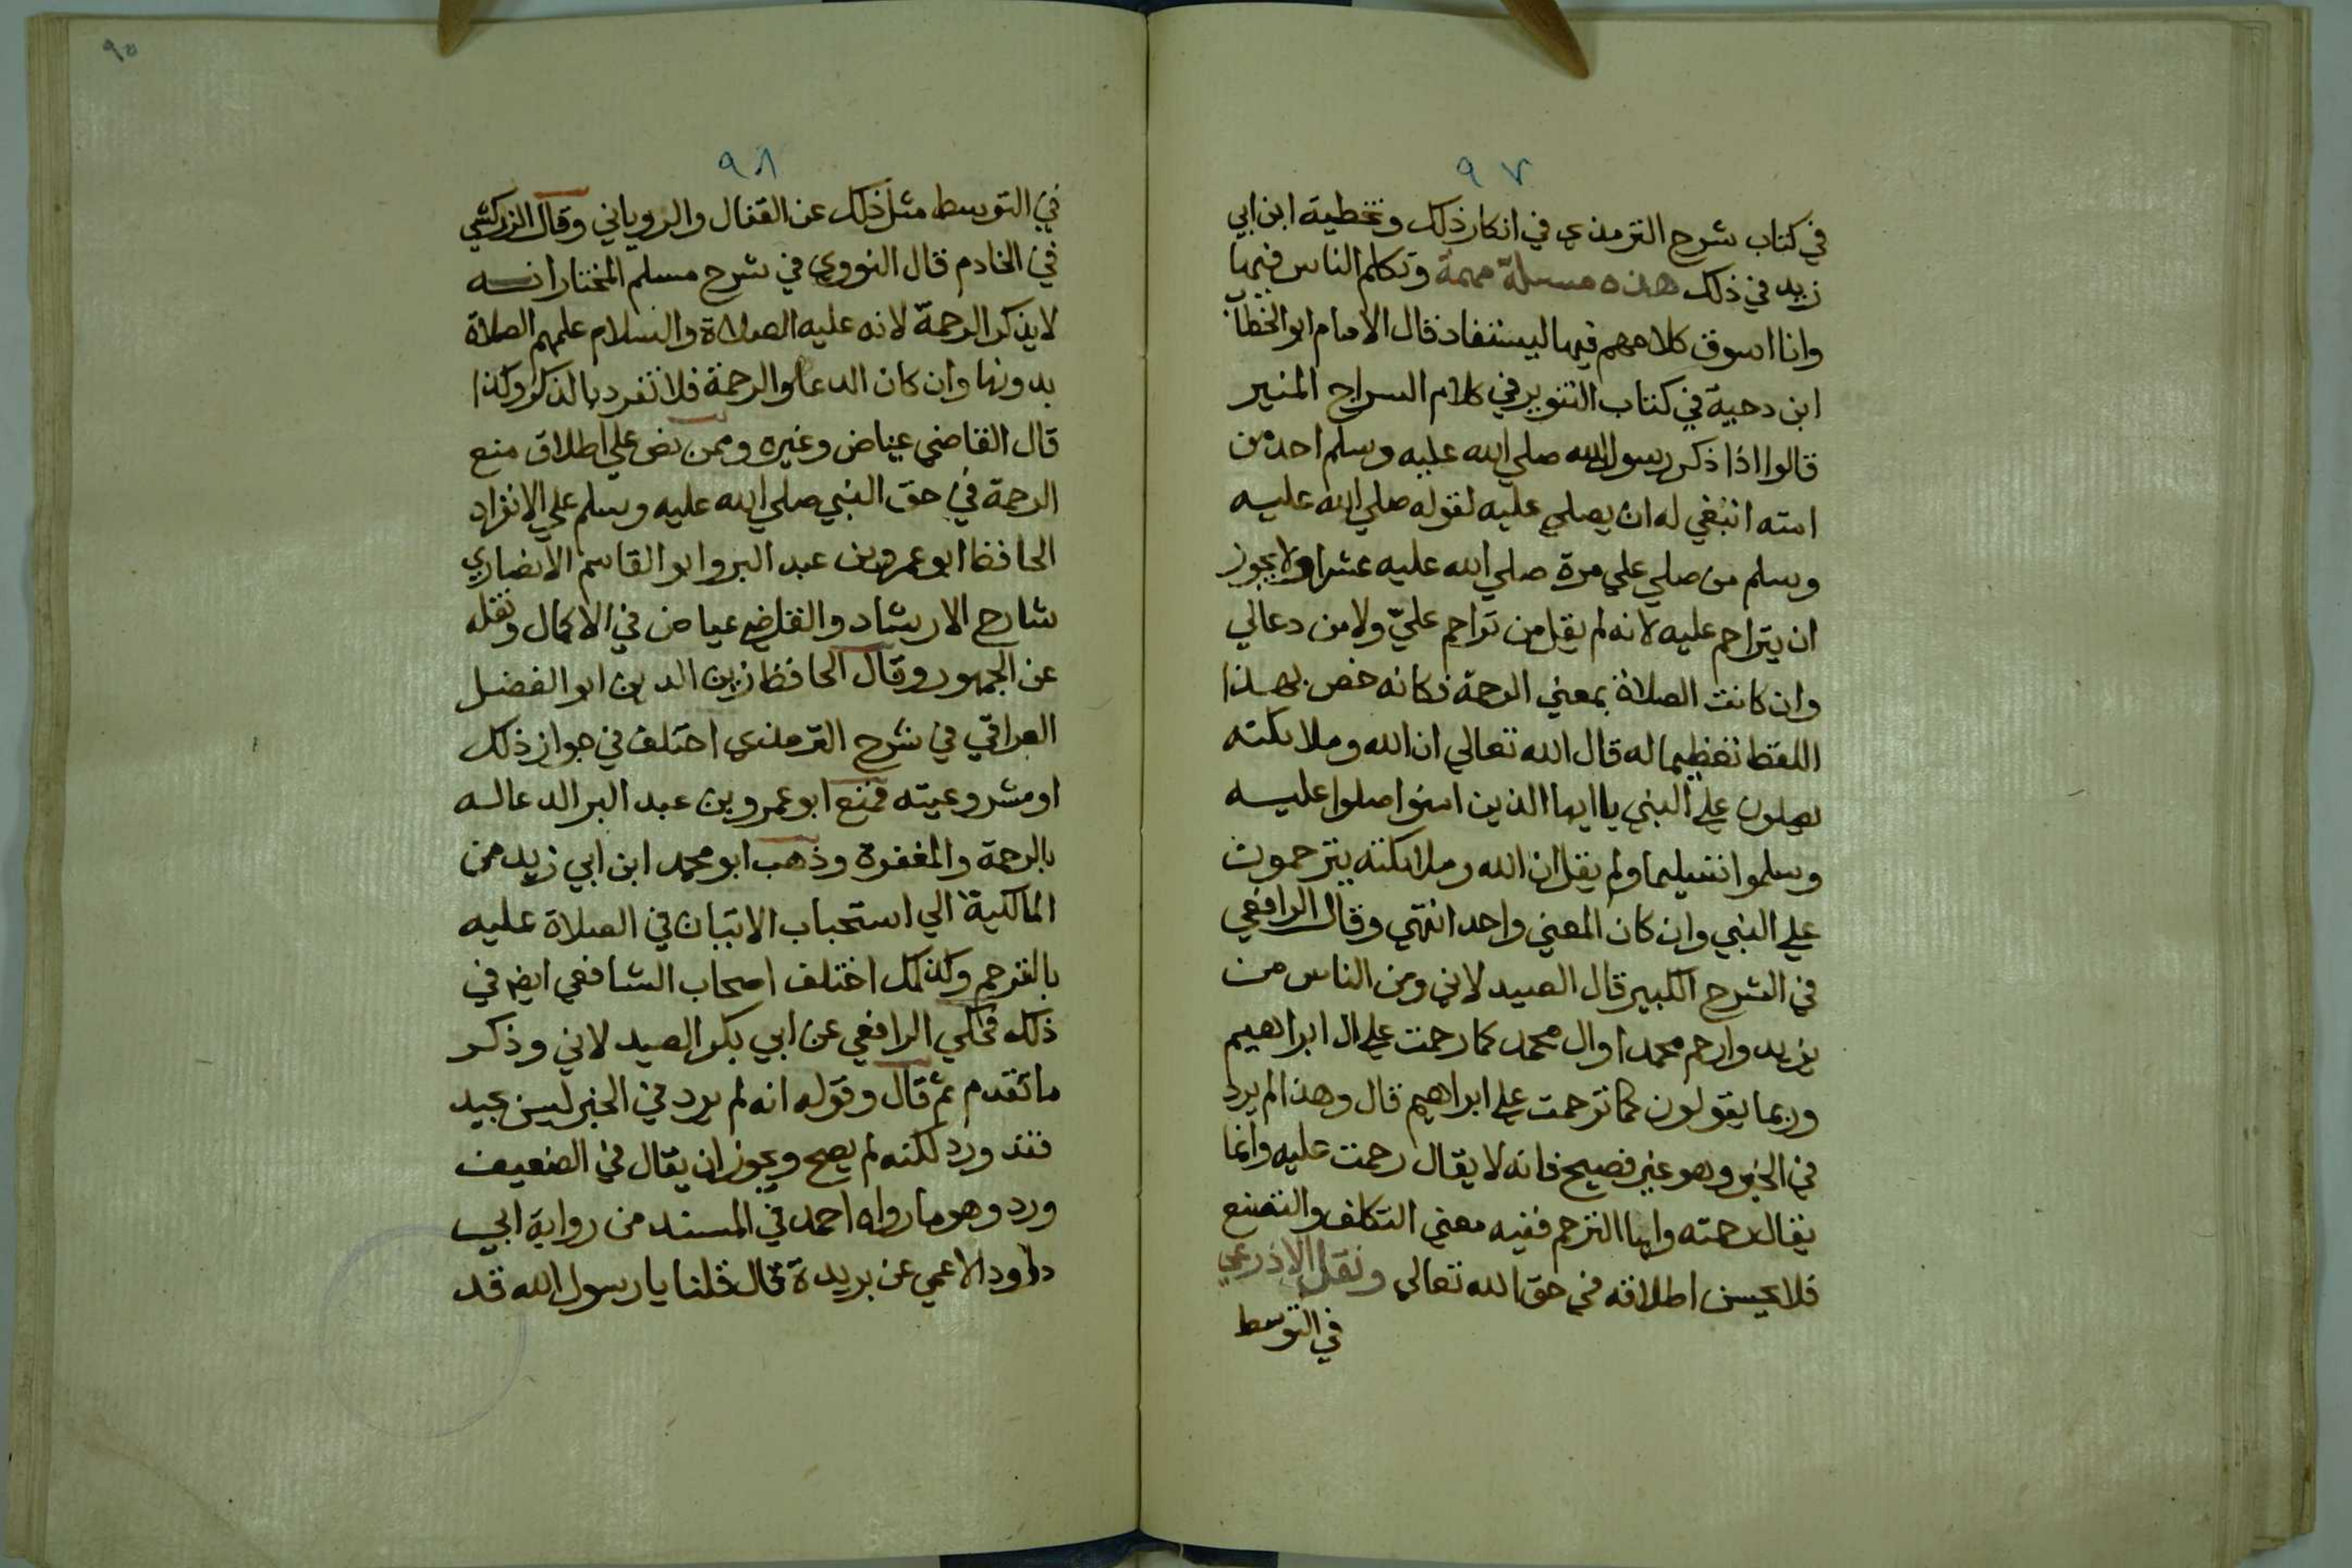 ٩٧
في كتاب شرح الترمذي في انكار ذلك وتخطية ابن ابي
زيد في ذلك هذه مسىلة مهمة وتكلم الناس فيها
وانا اسوق كلامهم فيها ليستفاد قال الامام ابو الخطاب
ابن دحية في كتاب التنوير في كلام السراج المنير
قالوا اذا ذكر رسول الله صلي الله عليه وسلم احد من
امته انبغي له ان يصلي عليه لقوله صلي الله عليه
وسلم من صلي علي مرة صلي الله عليه عشرا ولا يجوز
ان يتراحم عليه لانه لم يقل من تراحم عليّ ولا من دعالي
وان كانت الصلاة بمعني الرحمة فكانه خص بهذا
اللفظ تعظيما له قال الله تعالي ان الله وملايكته
يصلون علي النبي يا ايها الذين امنوا صلوا عليه
وسلموا تسليما ولم يقل ان الله وملايكته يترحمون
علي النبي وان كان المعني واحد انتهي وقال الرافعي
في الشرح الكبير قال الصيدلاني ومن الناس من
يزيد وارحم محمدا وال محمد كما رحمت علي ال ابراهيم
وربما يقولون كما ترحمت علي ابراهيم قال وهذا لم يرد
في الخبر وهو غير فصيح فانه لا يقال رحمت عليه وانما
يقال رحمته واما الترحم ففيه معني التكلف والتصنع
فلا يحسن اطلاقه في حق الله تعالي ونقل الاذرعي
في التوسط
٩٥
٩٨
في التوسط مثل ذلك عن القفال والروياني وقال الزركشي
في الخادم قال النووي في شرح مسلم المختار انه
لا يذكر الرحمة لانه عليه الصلاة والسلام علمهم الصلاة
بدونها وان كان الدعا والرحمة فلا تفرد بالذكر وكذا
قال القاضي عياض وغيره وممن نص علي اطلاق منع
الرحمة في حق النبي صلي الله عليه وسلم علي الانفراد
الحافظ ابو عمرو بن عبد البر وابو القاسم الانصاري
شارح الارشاد والقاضي عياض في الاكمال ونقله
عن الجمهور وقال الحافظ زين الدين ابو الفضل
العراقي في شرح الترمذي اختلف في جواز ذلك
او مشروعيته فمنع ابو عمرو بن عبد البر الدعا له
بالرحمة والمغفرة وذهب ابو محمد ابن ابي زيد من
المالكية الي استحباب الاتيان في الصلاة عليه
بالترحم وكذلك اختلف اصحاب الشافعي ايض في
ذلك فحكي الرافعي عن ابي بكر الصيدلاني وذكر
ما تقدم ثم قال وقوله انه لم يرد في الخبر ليس بجيد
فقد ورد لكنه لم يصح ويجوز ان يقال في الضعيف
ورد وهو ما رواه احمد في المسند من رواية ابي
داود الاعمي عن بريدة قال قلنا يا رسول الله قد